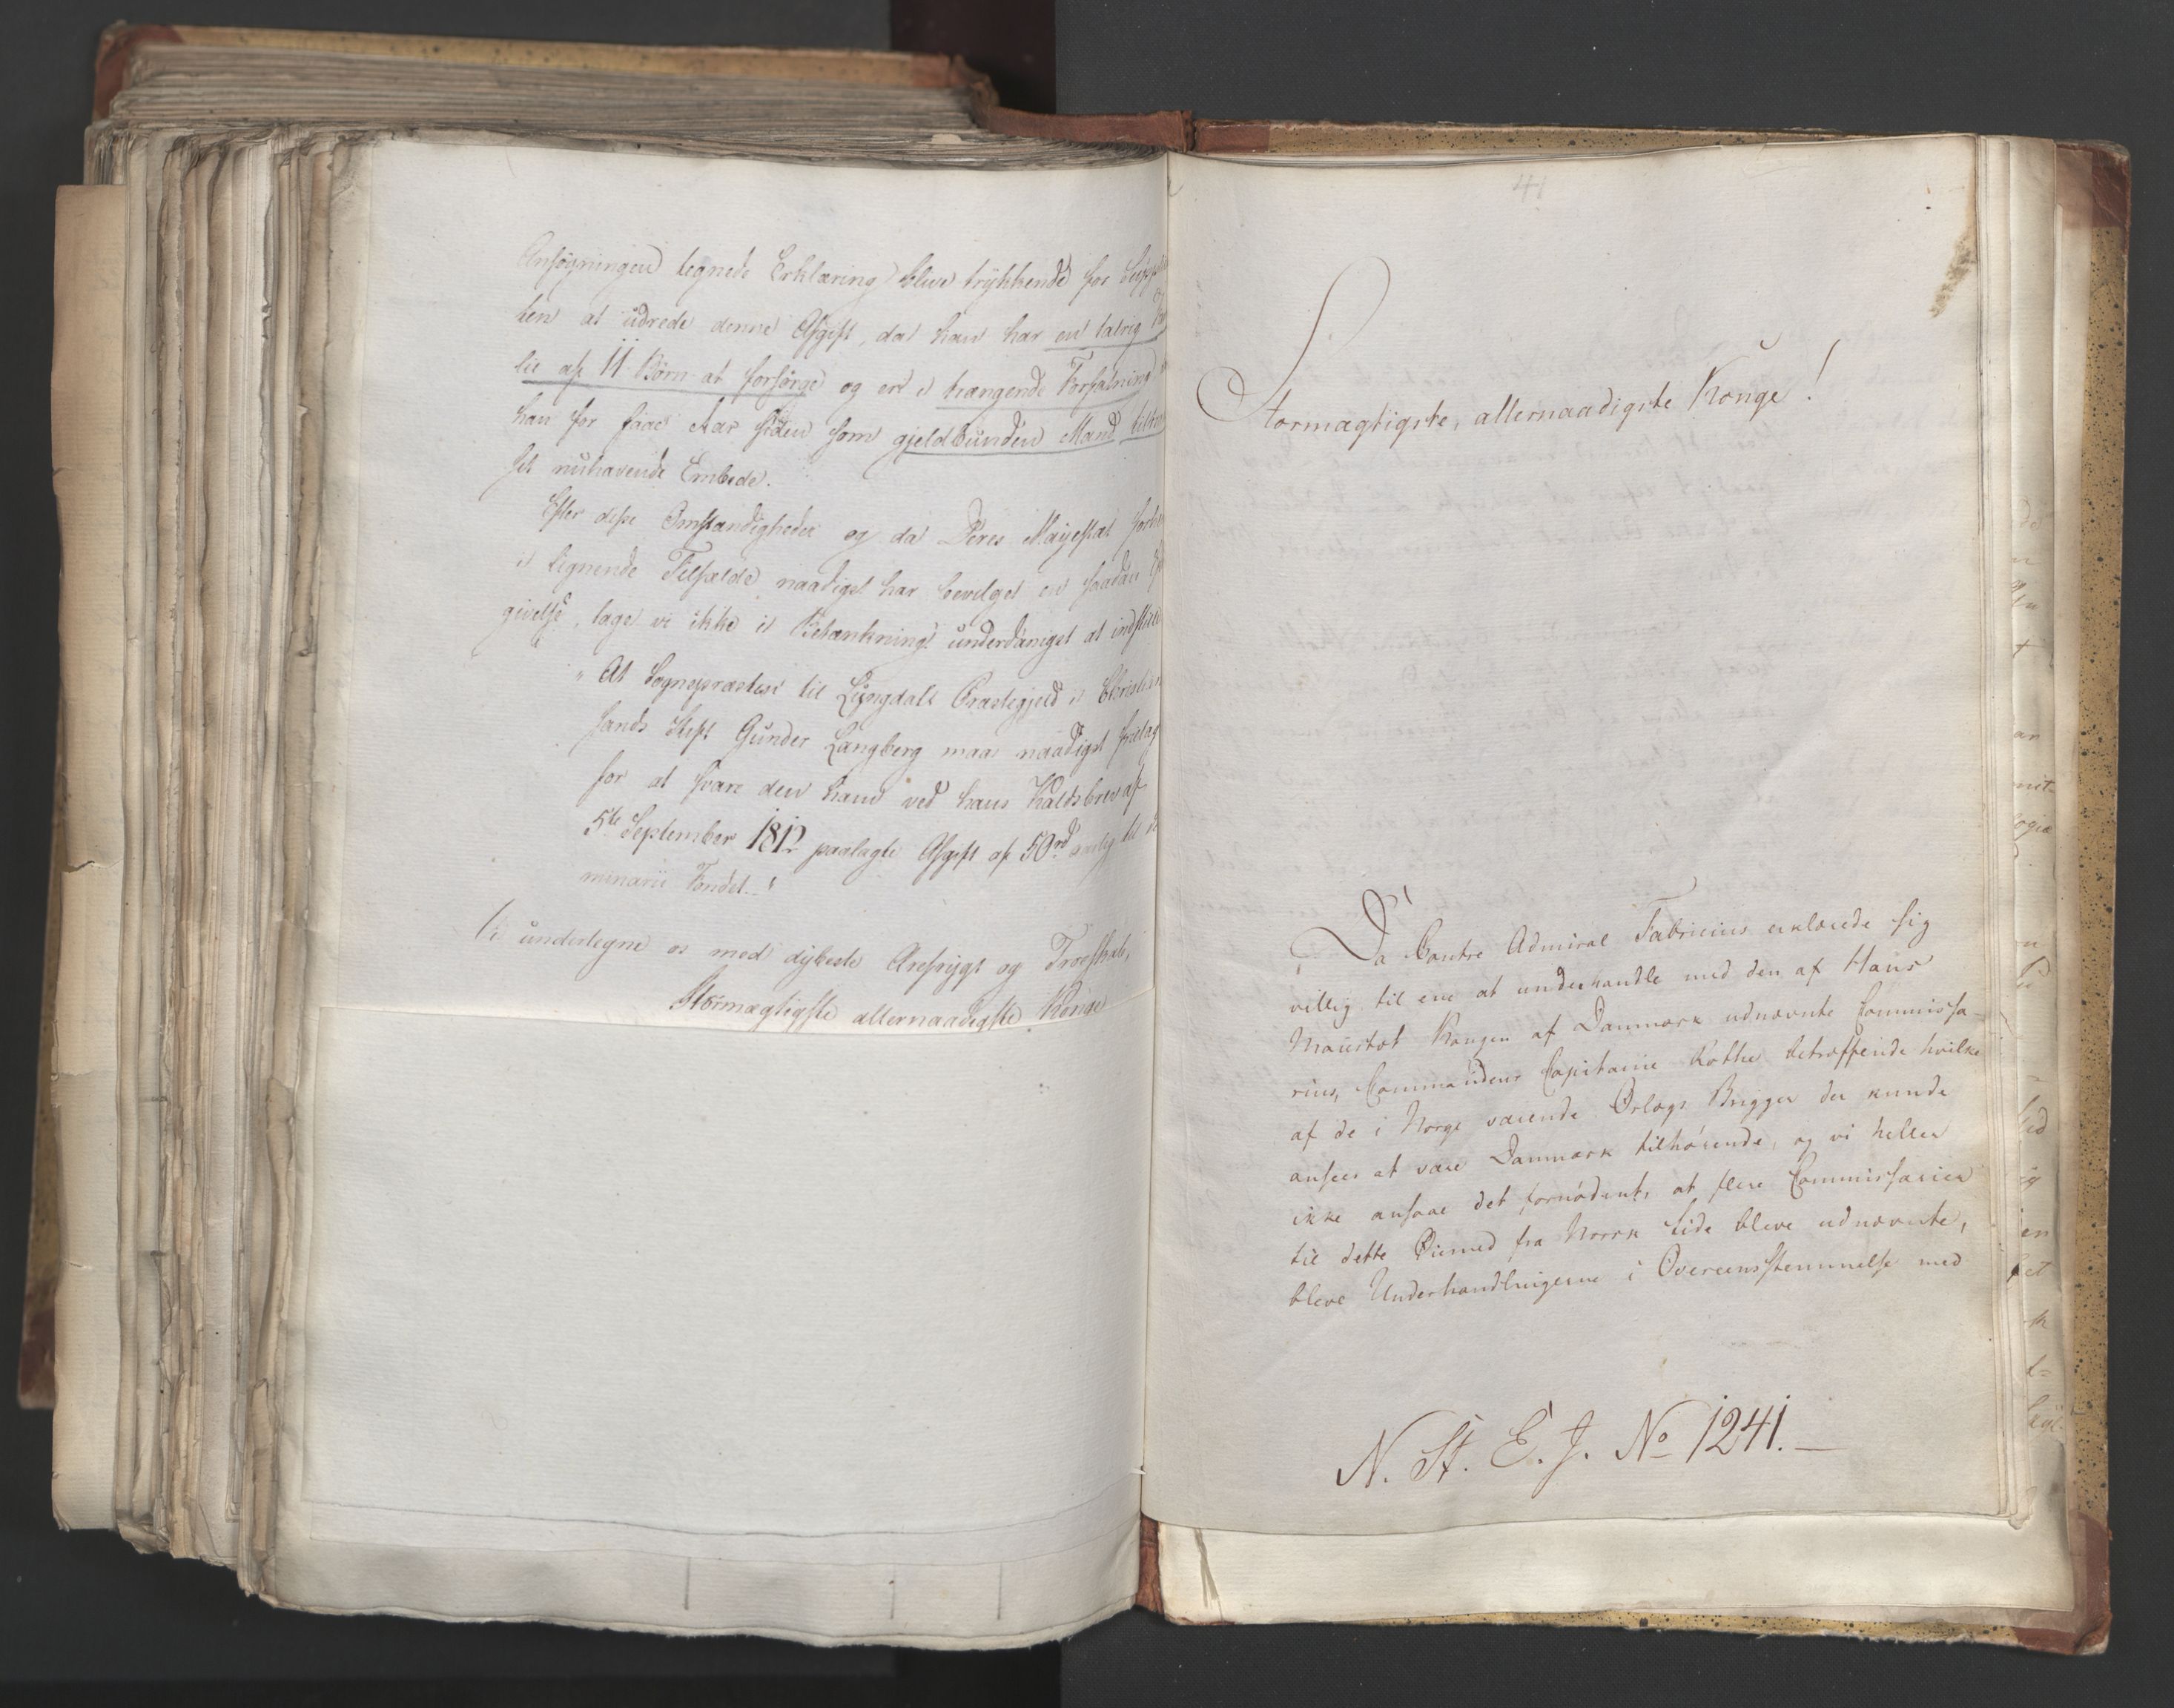 Ansøgningen tegnede Erklæring blive trykkende for
ken at udrede denne Afgift, da han har en talrig
lie af 11 Børn at forsørge og er i trængende Forfatning
han for faae Aar siden som gjeldbunden Mand
sit nuhavende Embede.
Efter disse Omstændigheder og da Deres Majestæt
i lignende Tilfælde naadigst har bevilget en saadan
givelse, tage vi ikke i Betænkning underdanigst at indstille
„At Sognepræsten til Lyngdals Præstegjeld i Christian
sands Stift Gunder Langberg maa naadigst fritag
for at svare den ham ved hans Kaldsbrev af
5te September 1812 paalagte Afgift af 50 rd aarlig til
minarii Fondet."
Vi undertegne os med dybeste Ærefrygt og Troeskab,
Stormægtigste allernaadigste Konge
41
Stormægtigste, allernaadigste Konge!
Da Contre Admiral Fabricius erklærede sig
villig til ene at underhandle med den af Hans
Maiestæt Kongen af Danmark udnævnte Commissa-
rius, Commandeur Capitaine Kothe betræffende hvilke
af de i Norge værende Orlogs Brigger der kunde
ansees at være Danmark tilhørende, og vi heller
ikke ansaae det fornødent, at flere Commissarier
til dette Øiemed fra Norsk Side bleve udnævnte,
bleve Underhandlingerne i Overeensstemmelse med
N. St. E. J. No 1241.